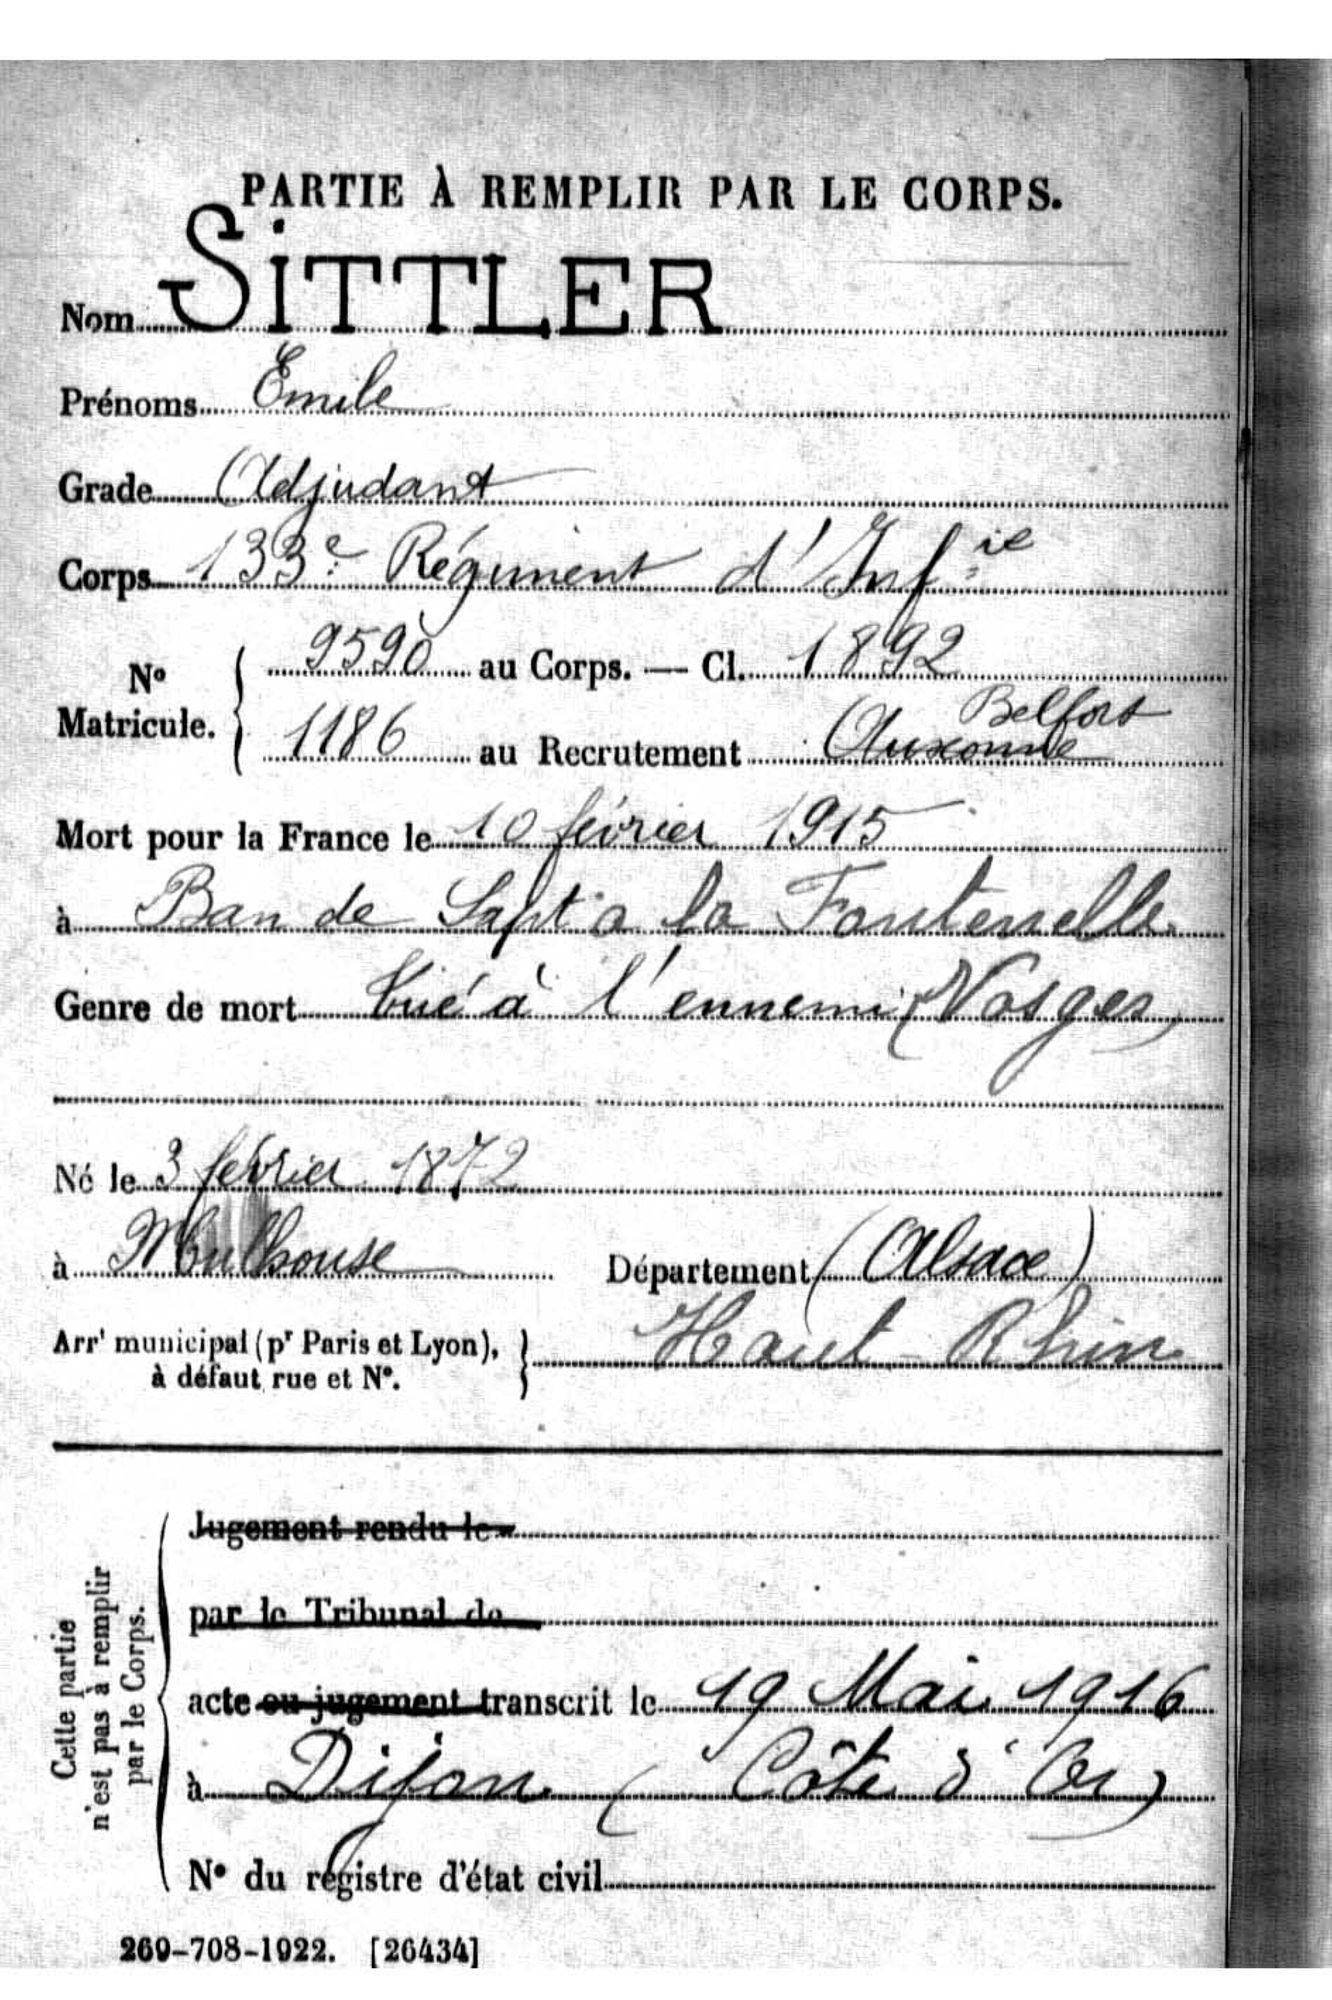 PARTIE À REMPLIR PAR LE CORPS.
Nom SiTTLER
Prénoms Emile
Grade Adjudant
Corps 133e Régiment d'Infie
No Matricule. 9590 au Corps. — Cl. 1892
Belfort
1186 au Recrutement Auxonne
Mort pour la France le 10 février 1915
à Ban de Sapt a la Fontenelle
Genre de mort tué à l'ennemi (Vosges)
Né le 3 février 1872
à Mulhouse Département (Alsace)
Arrt municipal (pr Paris et Lyon), Haut-Rhin
à défaut rue et No.
Cette partie
n'est pas à remplir
par le Corps.
Jugement rendu le
par le Tribunal de
acte ou jugement transcrit le 19 Mai 1916
à Dijon (Côte d'Or)
No du registre d'état civil
269-708-1922. [26434]